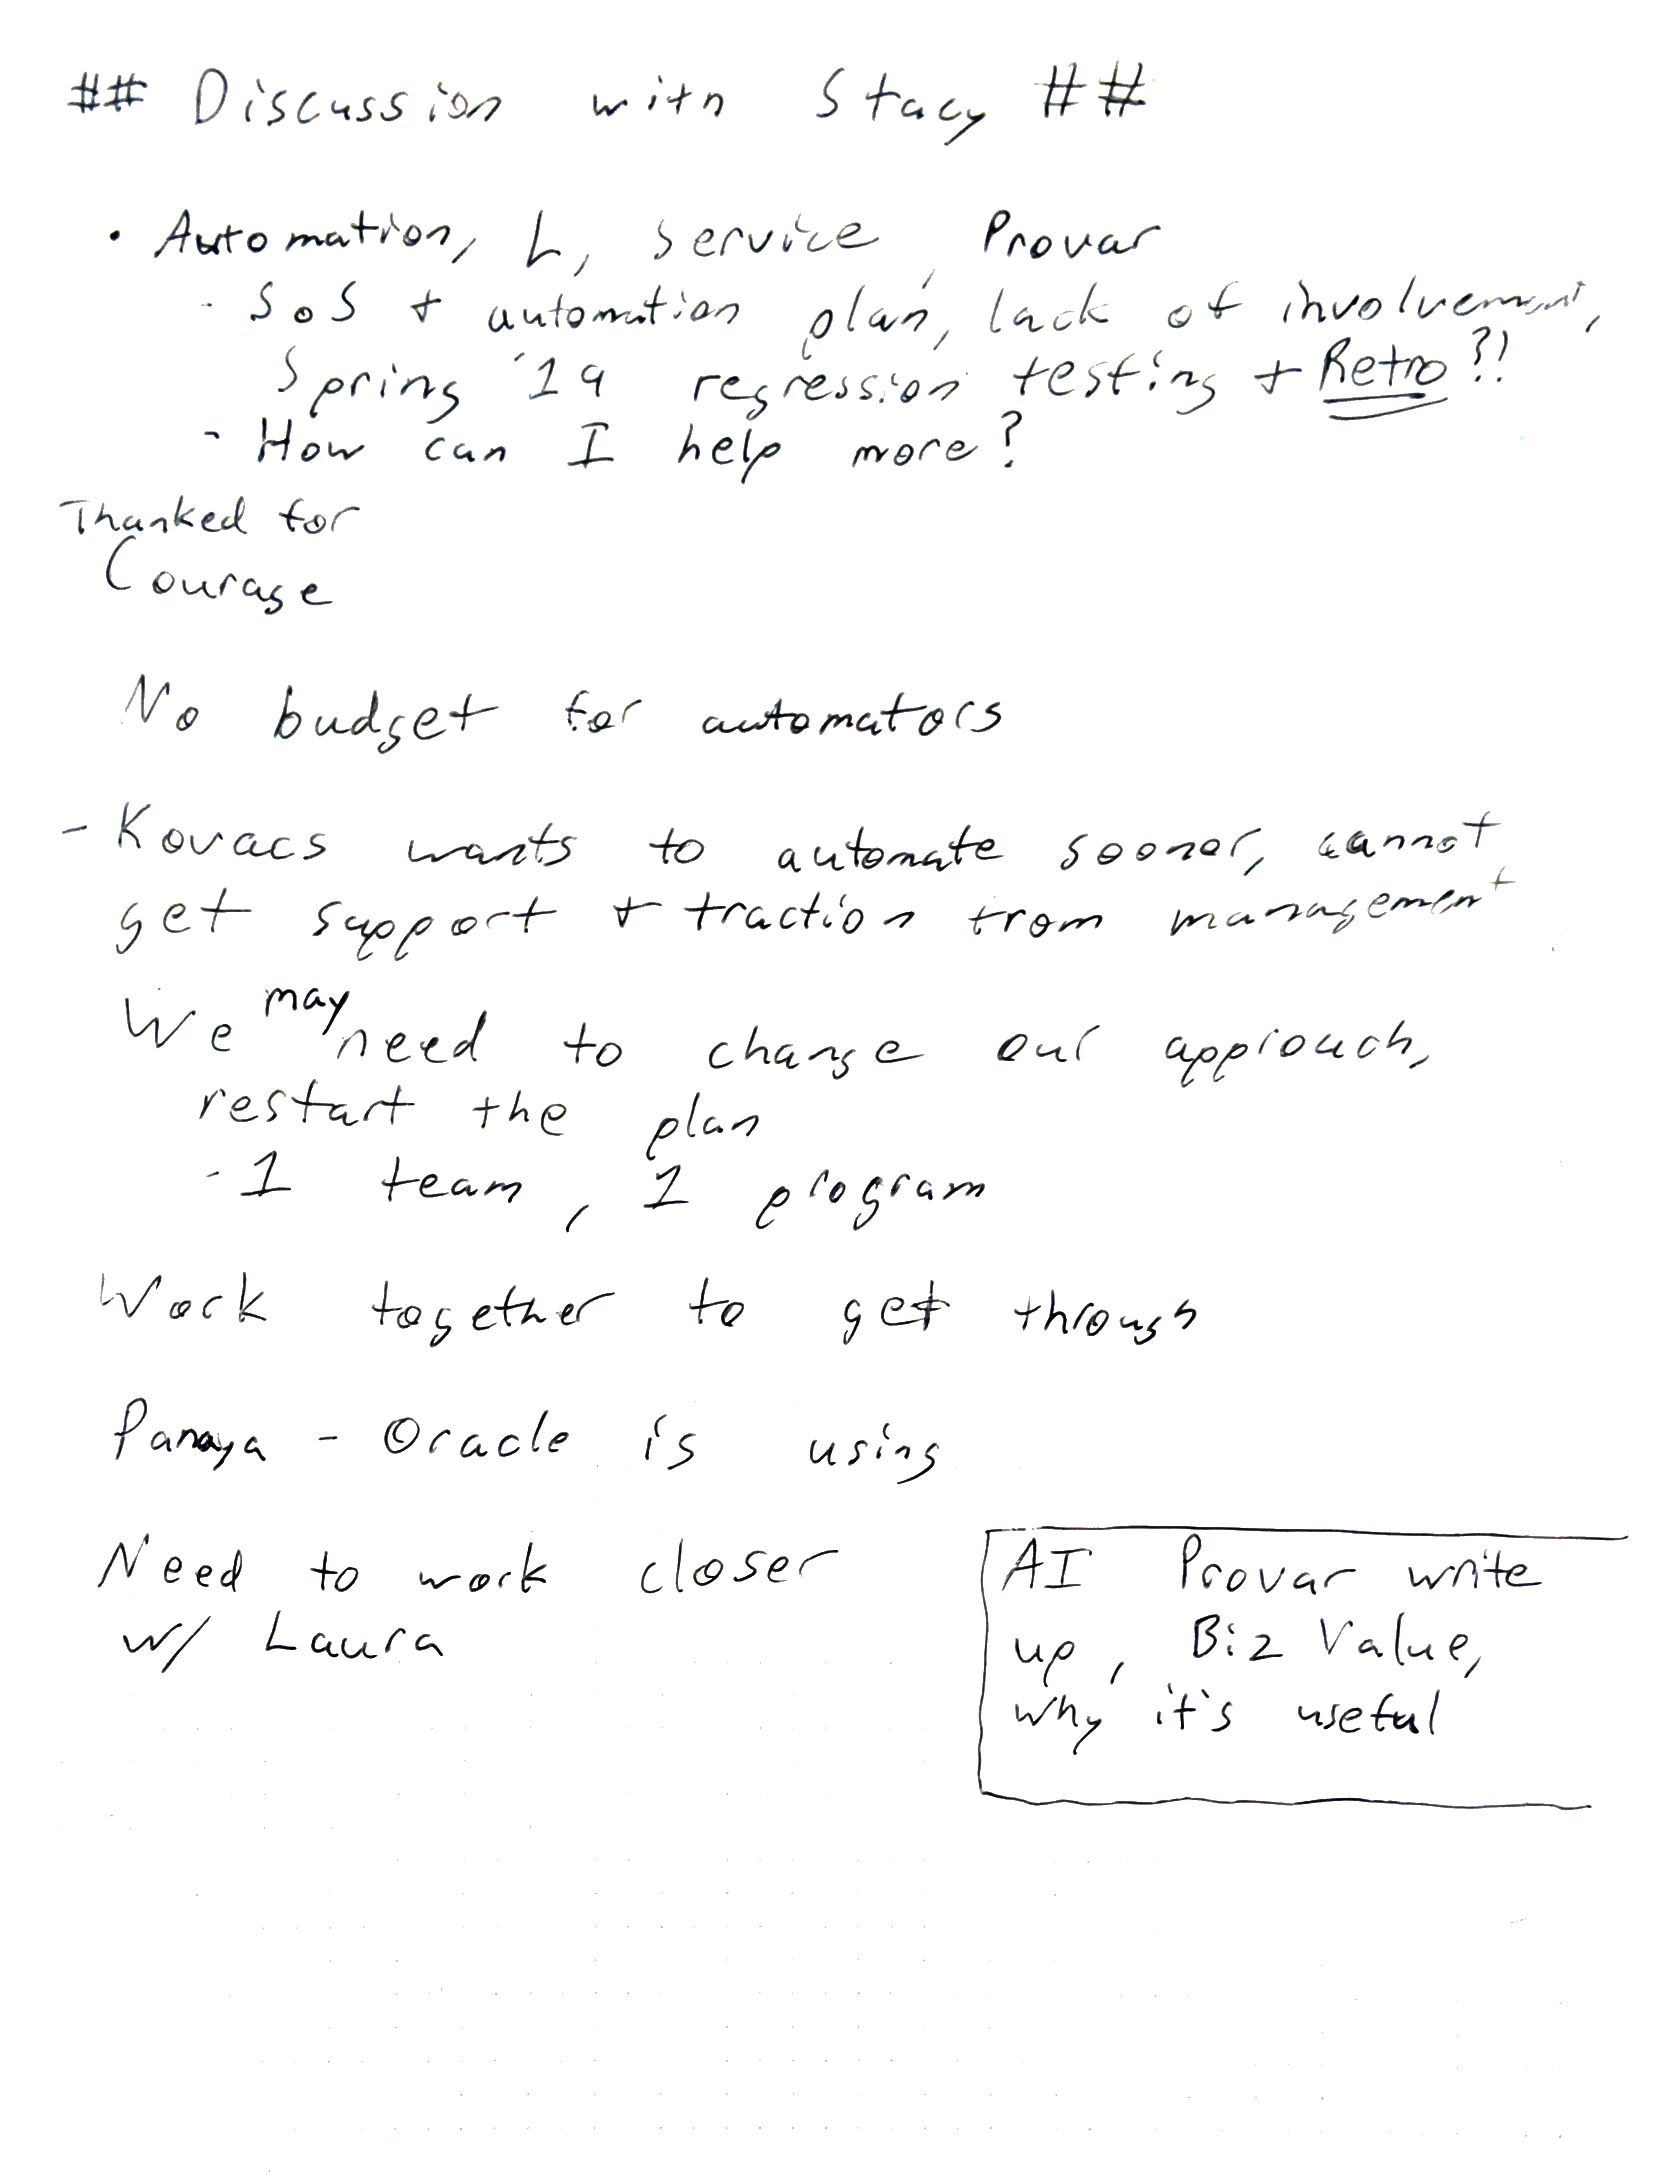 ## Discussion with Stacy ##
• Automation, L, Service, Provar
- SoS + automation plan, lack of involvement,
Spring '19 regression testing + Retro?!
- How can I help more?
Thanked for
Courage
No budget for automators
- Kovacs wants to automate sooner, cannot
get support + traction from management
We may need to change our approach,
restart the plan
- 1 team, 1 program
Work together to get through
Panaya - Oracle is using
Need to work closer
w/ Laura
AI Provar write
up, Biz Value,
why it's useful